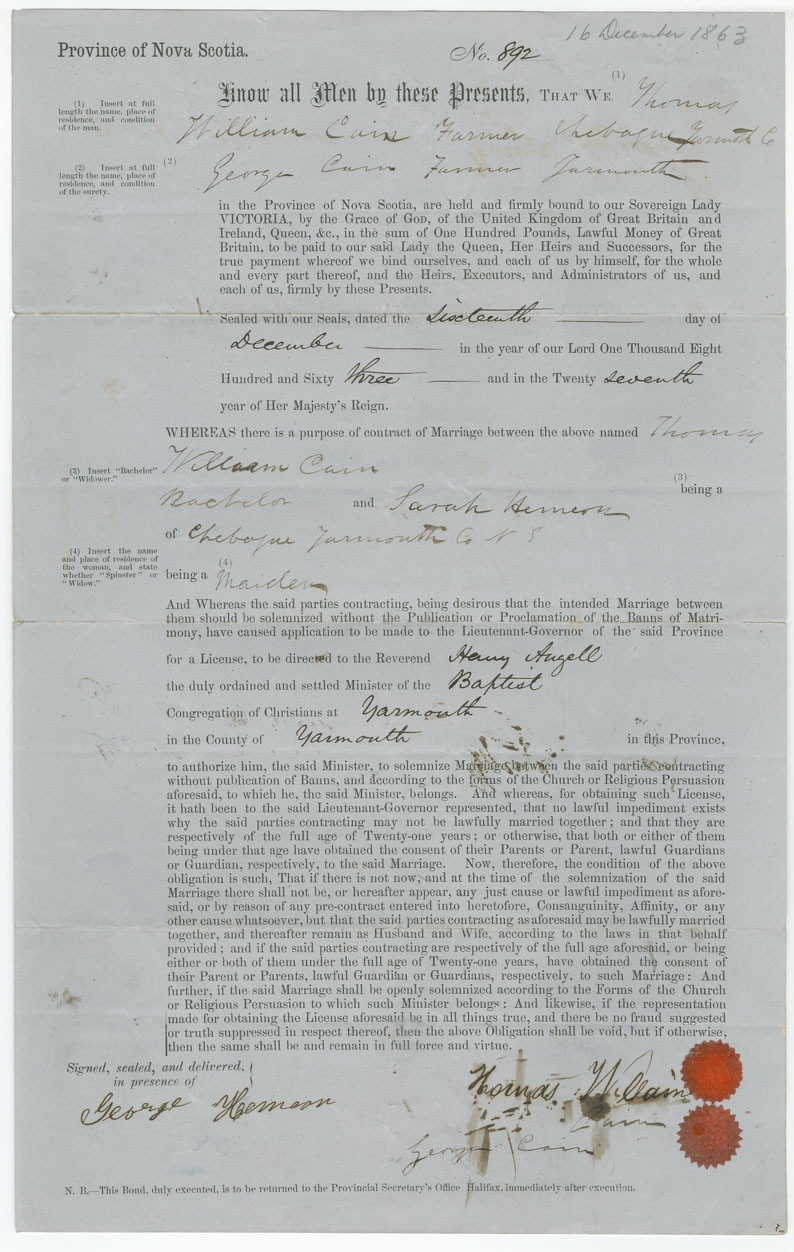 16 December 1863
Province of Nova Scotia.
No. 892
(1)
Know all Men by these Presents, THAT WE Thomas
(1) Insert at full
length the name, place of
residence, and condition
of the man.
William Cain Farmer Chebogue Yarmouth Co
(2) Insert at full
length the name, place of
residence, and condition
of the surety.
(2)
George Cain Farmer Yarmouth
in the Province of Nova Scotia, are held and firmly bound to our Sovereign Lady
VICTORIA, by the Grace of GOD, of the United Kingdom of Great Britain and
Ireland, Queen, &c., in the sum of One Hundred Pounds, Lawful Money of Great
Britain, to be paid to our said Lady the Queen, Her Heirs and Successors, for the
true payment whereof we bind ourselves, and each of us by himself, for the whole
and every part thereof, and the Heirs, Executors, and Administrators of us, and
each of us, firmly by these Presents.
Sealed with our Seals, dated the Sixteenth day of
December in the year of our Lord One Thousand Eight
Hundred and Sixty three and in the Twenty seventh
year of Her Majesty's Reign.
WHEREAS there is a purpose of contract of Marriage between the above named Thomas
William Cain
(3) Insert "Bachelor"
or "Widower."
(3)
being a
Bachelor and Sarah Hemeon
of Chebogue Yarmouth Co N S
(4) Insert the name
and place of residence of
the woman, and state
whether "Spinster" or
"Widow."
(4)
being a Maiden
And Whereas the said parties contracting, being desirous that the intended Marriage between
them should be solemnized without the Publication or Proclamation of the Banns of Matri-
mony, have caused application to be made to the Lieutenant-Governor of the said Province
for a License, to be directed to the Reverend Henry Angell
the duly ordained and settled Minister of the Baptist
Congregation of Christians at Yarmouth
in the County of Yarmouth in this Province,
to authorize him, the said Minister, to solemnize Marriage between the said parties contracting
without publication of Banns, and according to the forms of the Church or Religious Persuasion
aforesaid, to which he, the said Minister, belongs. And whereas, for obtaining such License,
it hath been to the said Lieutenant-Governor represented, that no lawful impediment exists
why the said parties contracting may not be lawfully married together; and that they are
respectively of the full age of Twenty-one years; or otherwise, that both or either of them
being under that age have obtained the consent of their Parents or Parent, lawful Guardians
or Guardian, respectively, to the said Marriage. Now, therefore, the condition of the above
obligation is such, That if there is not now, and at the time of the solemnization of the said
Marriage there shall not be, or hereafter appear, any just cause or lawful impediment as afore-
said, or by reason of any pre-contract entered into heretofore, Consanguinity, Affinity, or any
other cause whatsoever, but that the said parties contracting as aforesaid may be lawfully married
together, and thereafter remain as Husband and Wife, according to the laws in that behalf
provided; and if the said parties contracting are respectively of the full age aforesaid, or being
either or both of them under the full age of Twenty-one years, have obtained the consent of
their Parent or Parents, lawful Guardian or Guardians, respectively, to such Marriage: And
further, if the said Marriage shall be openly solemnized according to the Forms of the Church
or Religious Persuasion to which such Minister belongs: And likewise, if the representation
made for obtaining the License aforesaid be in all things true, and there be no fraud suggested
or truth suppressed in respect thereof, then the above Obligation shall be void, but if otherwise,
then the same shall be and remain in full force and virtue.
Signed, sealed, and delivered,
in presence of
George Hemeon
Thomas Wm Cain
Cain
George Cain
N. B.—This Bond, duly executed, is to be returned to the Provincial Secretary's Office Halifax, immediately after execution.